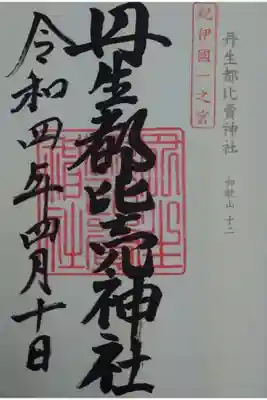 紀伊國一之宮
丹生都比賣神社
和歌山 十二
丹生都比売神社
令和四年四月十日